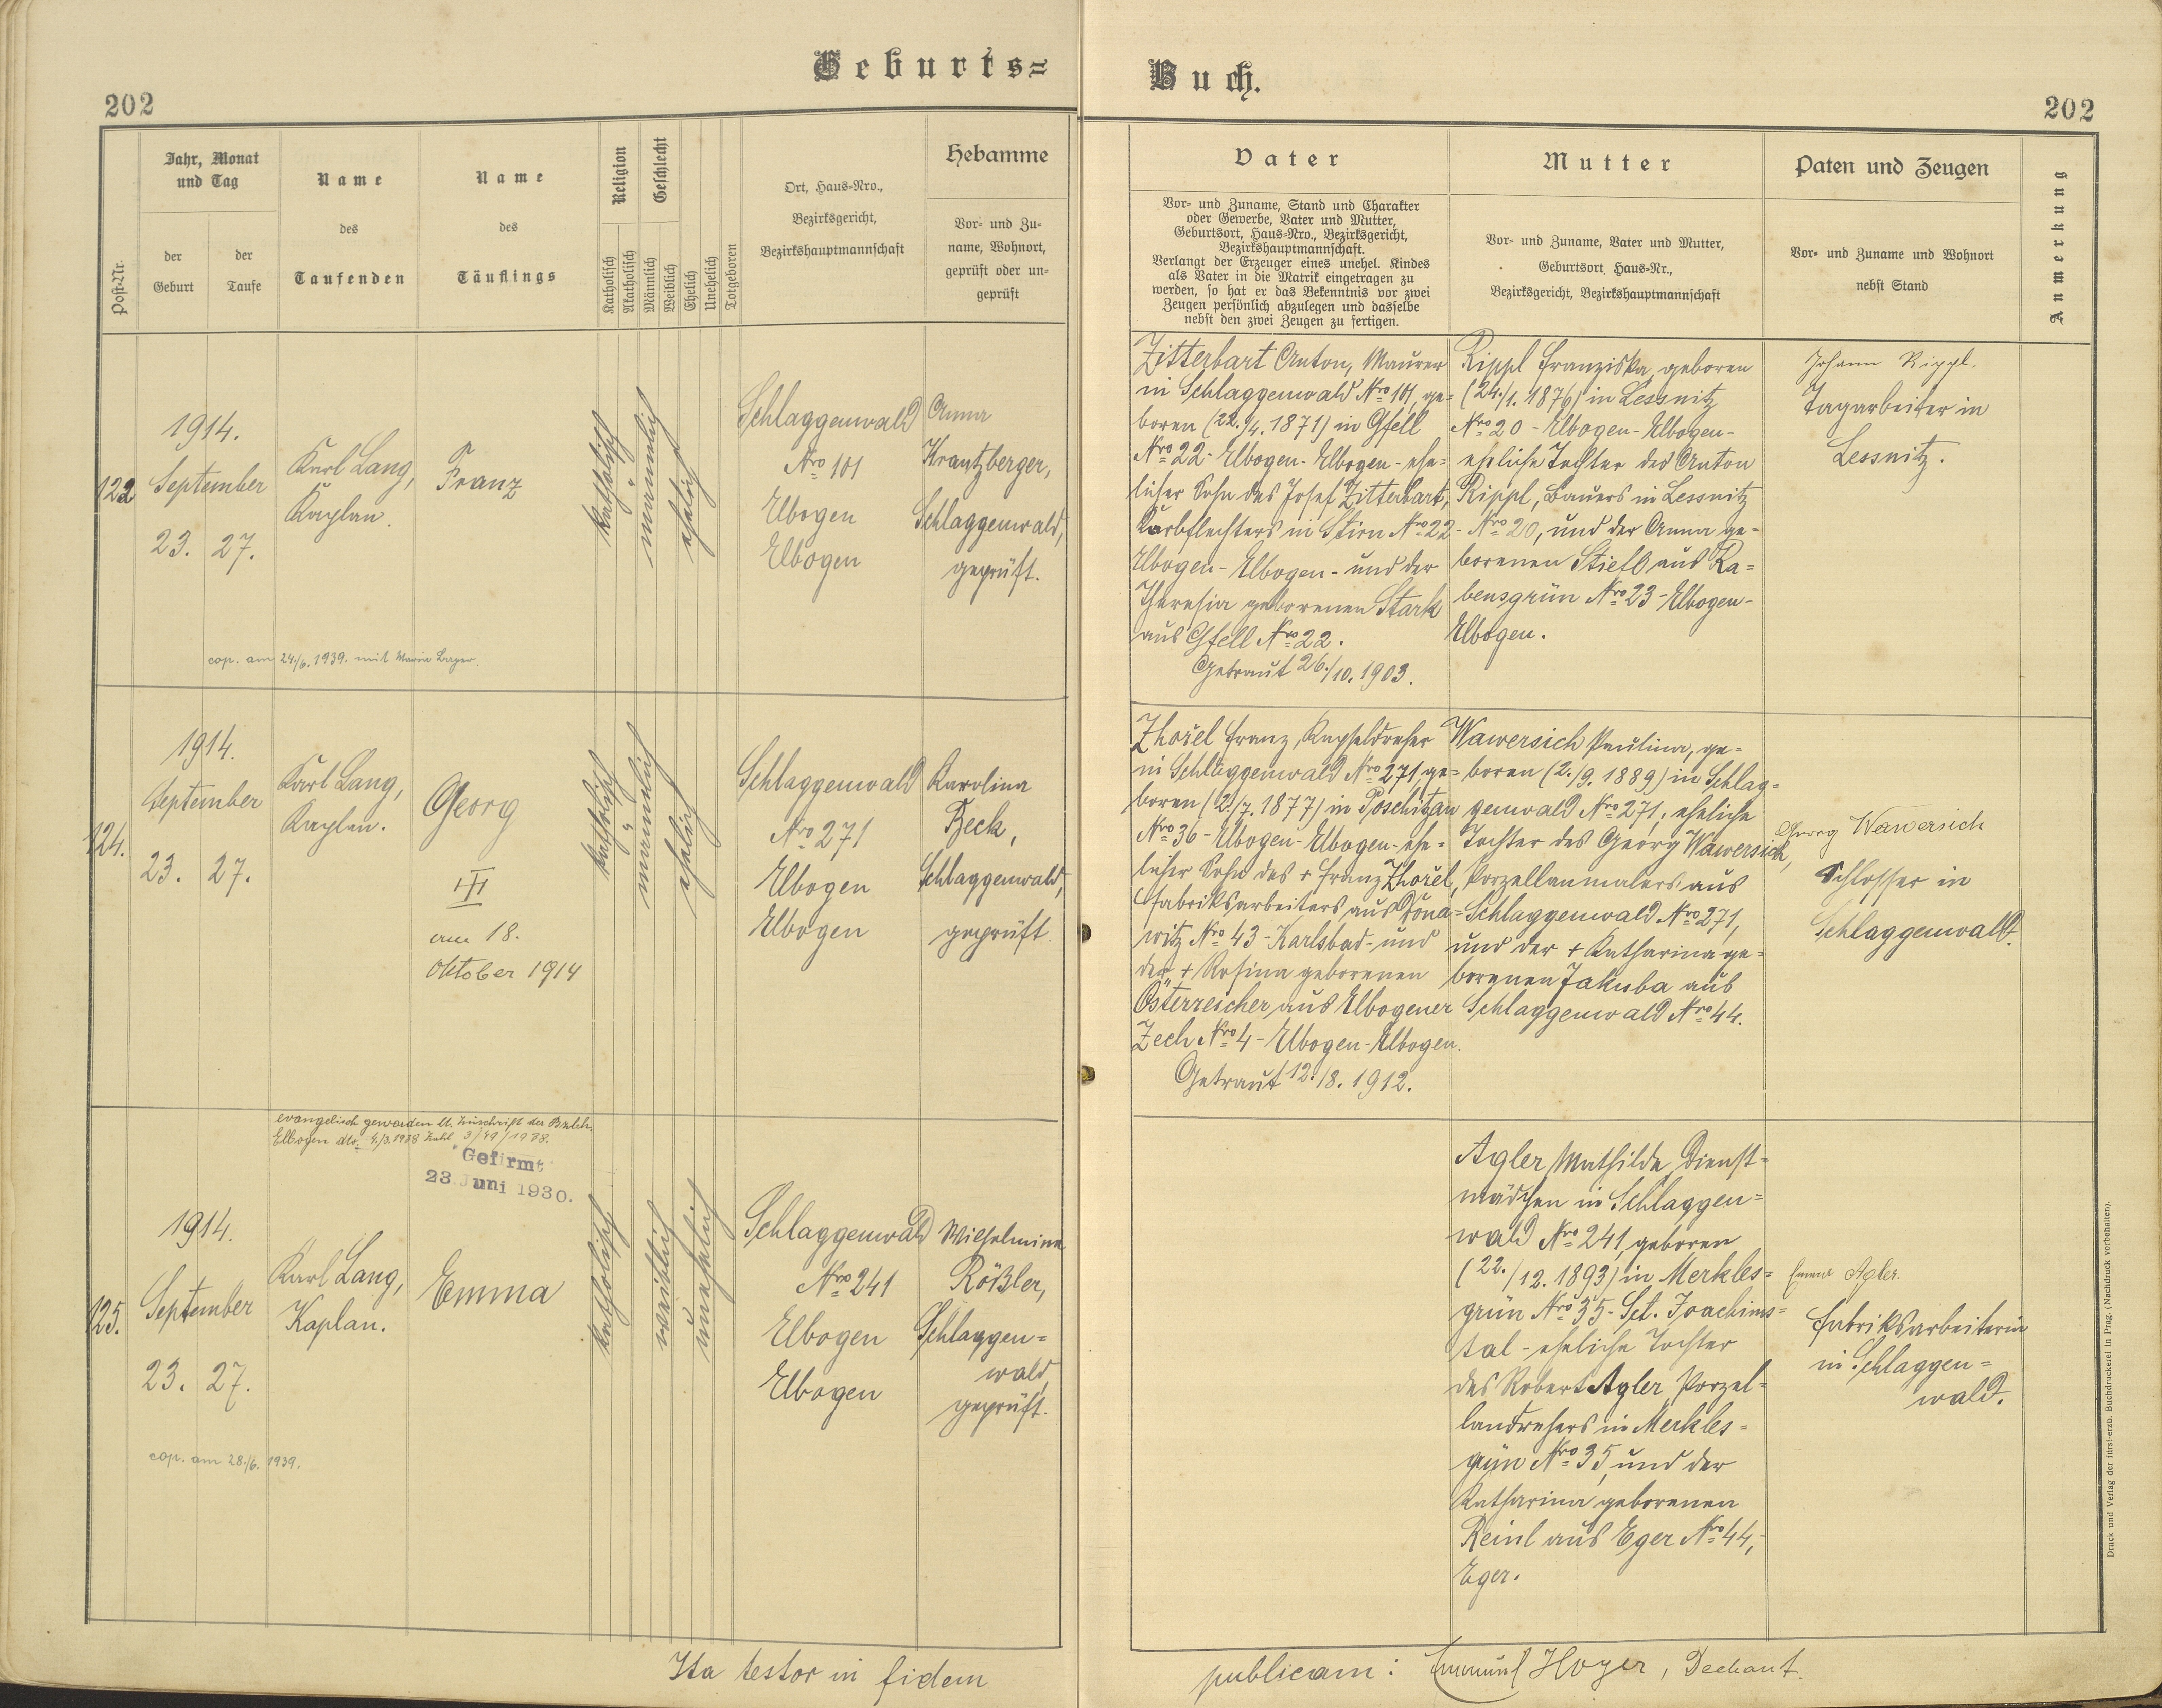 Geburts=
Buch.
202
202
Post-Nr.
Jahr, Monat
und Tag
der
Geburt
der
Taufe
Name
des
Taufenden
Name
des
Täuflings
Religion
Katholisch
Akatholisch
Geschlecht
Männlich
Weiblich
Ehelich
Unehelich
Totgeboren
Ort, Haus-Nro.,
Bezirksgericht,
Bezirkshauptmannschaft
Hebamme
Vor- und Zu-
name, Wohnort,
geprüft oder un-
geprüft
Vater
Vor- und Zuname, Stand und Charakter
oder Gewerbe, Vater und Mutter,
Geburtsort, Haus-Nro., Bezirksgericht,
Bezirkshauptmannschaft.
Verlangt der Erzeuger eines unehel. Kindes
als Vater in die Matrik eingetragen zu
werden, so hat er das Bekenntnis vor zwei
Zeugen persönlich abzulegen und dasselbe
nebst den zwei Zeugen zu fertigen.
Mutter
Vor- und Zuname, Vater und Mutter,
Geburtsort, Haus-Nr.,
Bezirksgericht, Bezirkshauptmannschaft
Paten und Zeugen
Vor- und Zuname und Wohnort
nebst Stand
Anmerkung
1914.
September
23. 27.
Karl Lang,
Kaplan.
Franz
katholisch
männlich
ehelich
Schlaggenwald
Nro 101
Elbogen
Elbogen
Anna
Krantzberger,
Schlaggenwald,
geprüft.
cop. am 24./6. 1939. mit Marie
Zitterbart Anton, Maurer
in Schlaggenwald Nro 101, ge=
boren (22./4. 1871) in Gfell
Nro 22 - Elbogen - Elbogen - ehe=
licher Sohn des Josef Zitterbart,
Korbflechters in Stirn Nro 22 -
Elbogen - Elbogen - und der
Theresia geborenen Stark
aus Gfell Nro 22.
Getraut 26./10. 1903.
Rippl Franziska, geboren
(24./1. 1876) in Lessnitz
Nro 20 - Elbogen - Elbogen -
eheliche Tochter des Anton
Rippl, Bauers in Lessnitz
Nro 20, und der Anna ge=
borenen Stiel aus Ra=
bensgrün Nro 23 - Elbogen -
Elbogen.
Johann Rippl.
Tagarbeiter in
Lessnitz.
124.
1914.
September
23. 27.
Karl Lang,
Kaplan.
Georg
am 18.
Oktober 1914
katholisch
männlich
ehelich
Schlaggenwald
Nro 271
Elbogen
Elbogen
Karolina
Beck,
Schlaggenwald,
geprüft.
Zhořel Franz, Kapseldreher
in Schlaggenwald Nro 271, ge=
boren (2./7. 1877) in Poschitzau
Nro 36 - Elbogen - Elbogen - ehe=
licher Sohn des + Franz Zhořel,
Fabriksarbeiters aus Dona=
witz Nro 43 - Karlsbad - und
der + Rosina geborenen
Österreicher aus Elbogener
Zech Nro 4 - Elbogen - Elbogen.
Getraut 12./8. 1912.
Wawersich Paulina, ge=
boren (2./9. 1889) in Schlag=
genwald Nro 271, eheliche
Tochter des Georg Wawersich,
Porzellanmalers aus
Schlaggenwald Nro 271,
und der + Katharina ge=
borenen Jakuba aus
Schlaggenwald Nro 44.
Georg Wawersich
Schlosser in
Schlaggenwald.
evangelisch geworden lt. Zuschrift der
Elbogen dto.
Gefirmt
23. Juni 1930.
125.
1914.
September
23. 27.
Karl Lang,
Kaplan.
Emma
katholisch
weiblich
unehelich
Schlaggenwald
Nro 241
Elbogen
Elbogen
Wilhelmine
Rößler,
Schlaggen=
wald,
geprüft.
cop. am 28./6. 1939.
Agler Mathilde, Dienst=
mädchen in Schlaggen=
wald Nro 241, geboren
(22./12. 1893) in Merkles=
grün Nro 35 - Sct. Joachims=
tal - eheliche Tochter
des Robert Agler, Porzel=
landrehers in Merkles=
grün Nro 35, und der
Katharina geborenen
Reinl aus Eger Nro 44,-
Eger.
Emma Agler.
Fabriksarbeiterin
in Schlaggen=
wald.
Ita testor in fidem
publicam: Hoyer, Dechant.
Druck und Verlag der fürst-erzb. Buchdruckerei in Prag. (Nachdruck vorbehalten).